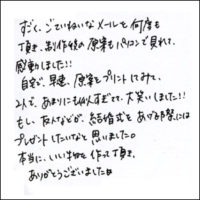 すごく、ごていねいなメールを何度も
頂き、制作段の原案もパソコンで見れて、
感動しました!!
自宅で、早速、原案をプリントしてみて、
2人で、あまりにも似すぎてて、大笑いしました!!
もし、友人などが、結婚式をあげる際には
プレゼントしたいなと思いました。
本当に、いい物を作って頂き、
ありがとうございました